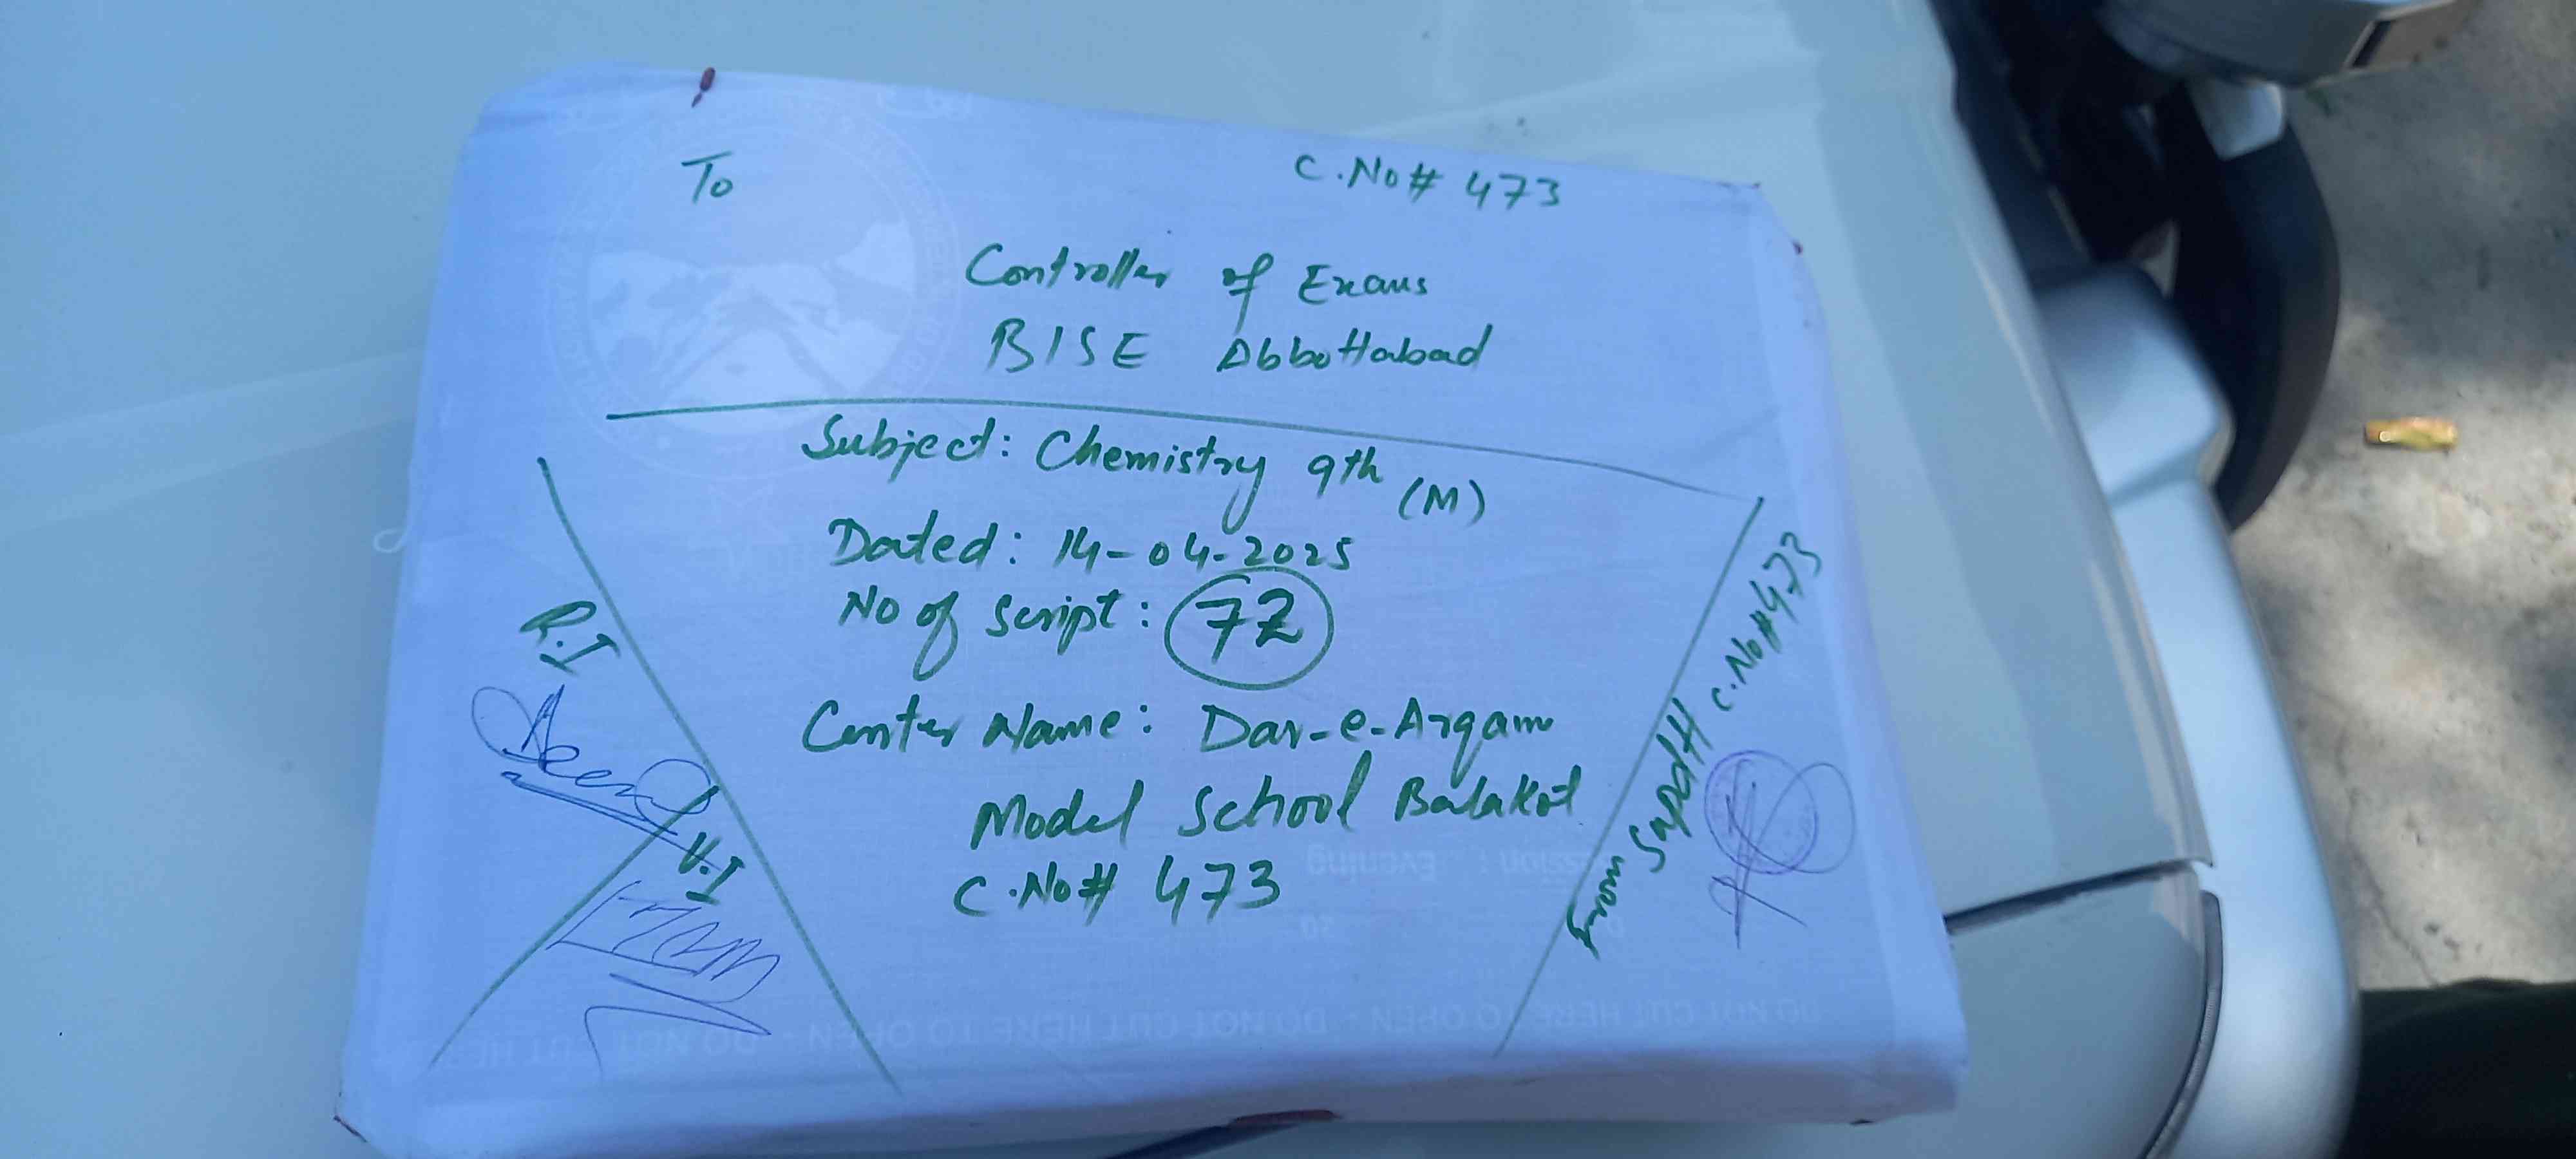 To
C.No# 473
Controller of Exams
BISE Abbottabad
Subject: Chemistry 9th (M)
Dated: 14-04-2025
No of script: 72
Center Name: Dar-e-Arqam
Model School Balakot
C.No# 473
R.I
V.I
From Supdtt C.No#473
Session : Evening
20
DO NOT CUT HERE TO OPEN - DO NOT CUT HERE TO OPEN - DO NOT CUT HERE